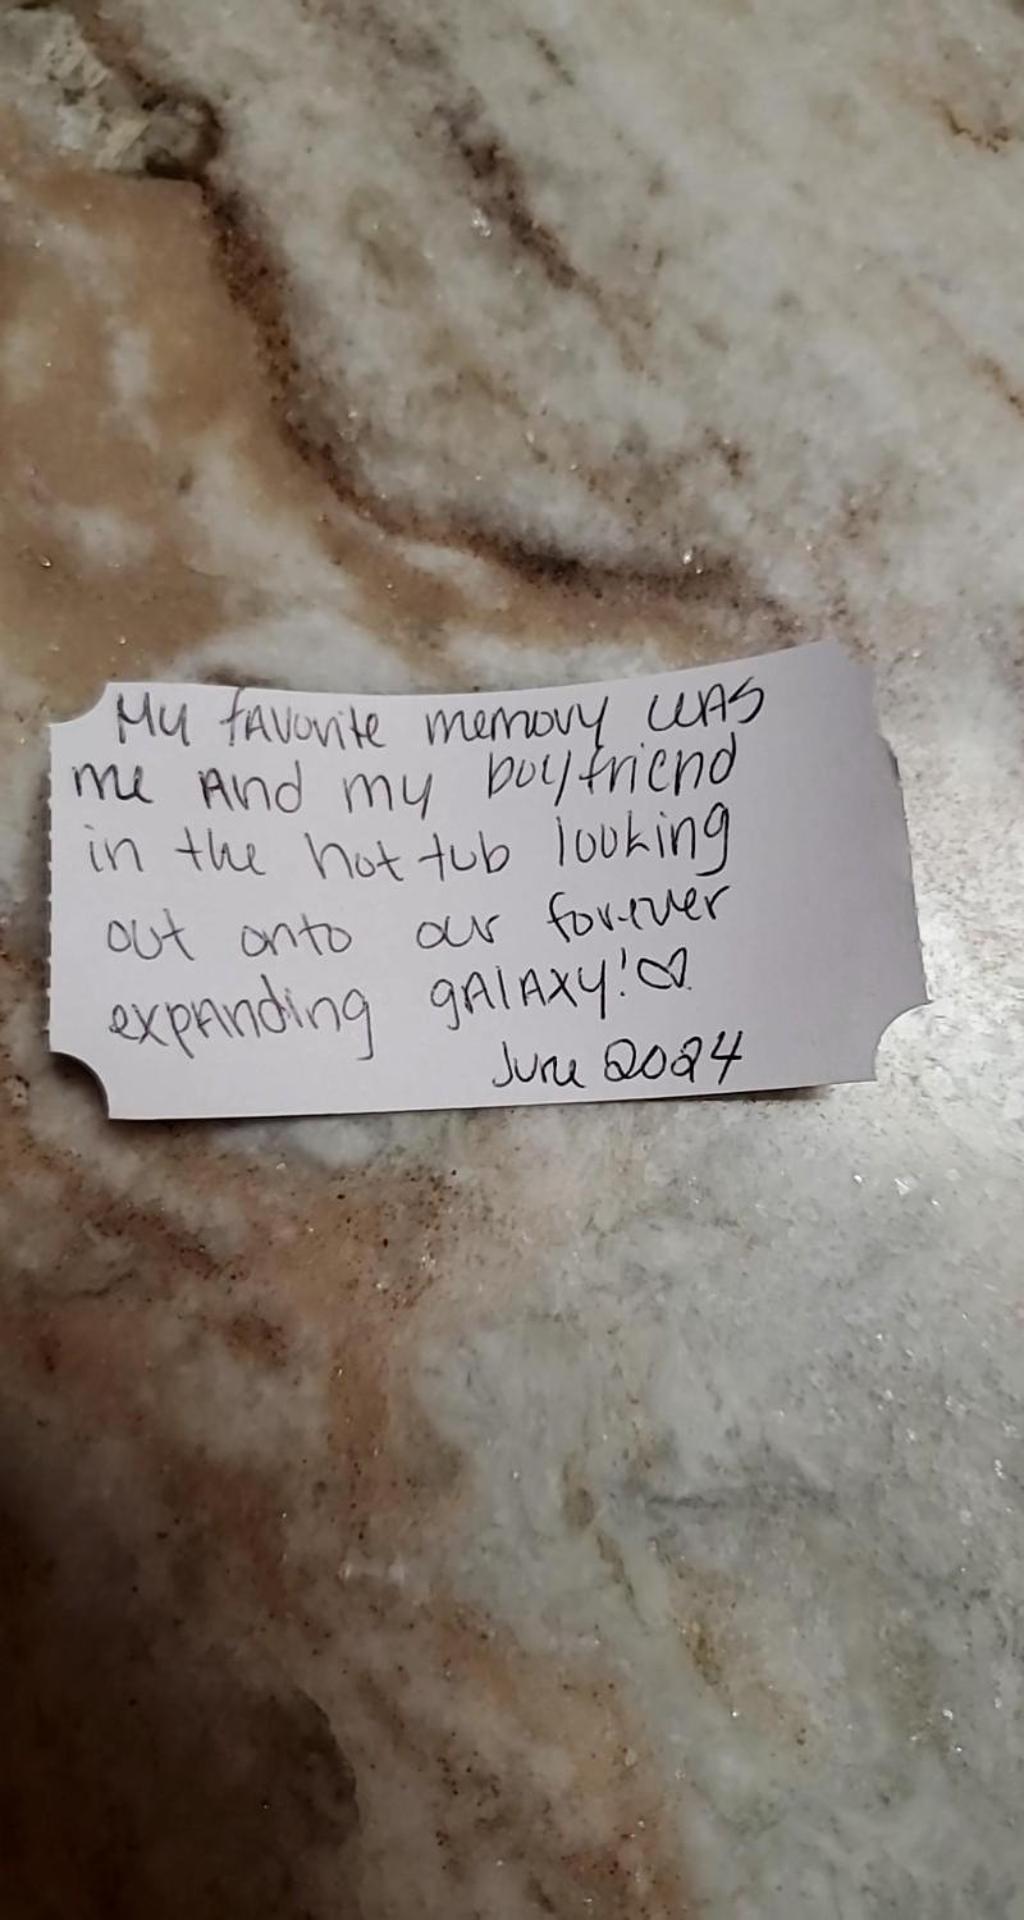 My fAvorite memory wAS
me And my boyfriend
in the hot tub looking
out onto our forever
expAnding gAlAxy!♡
June 2024